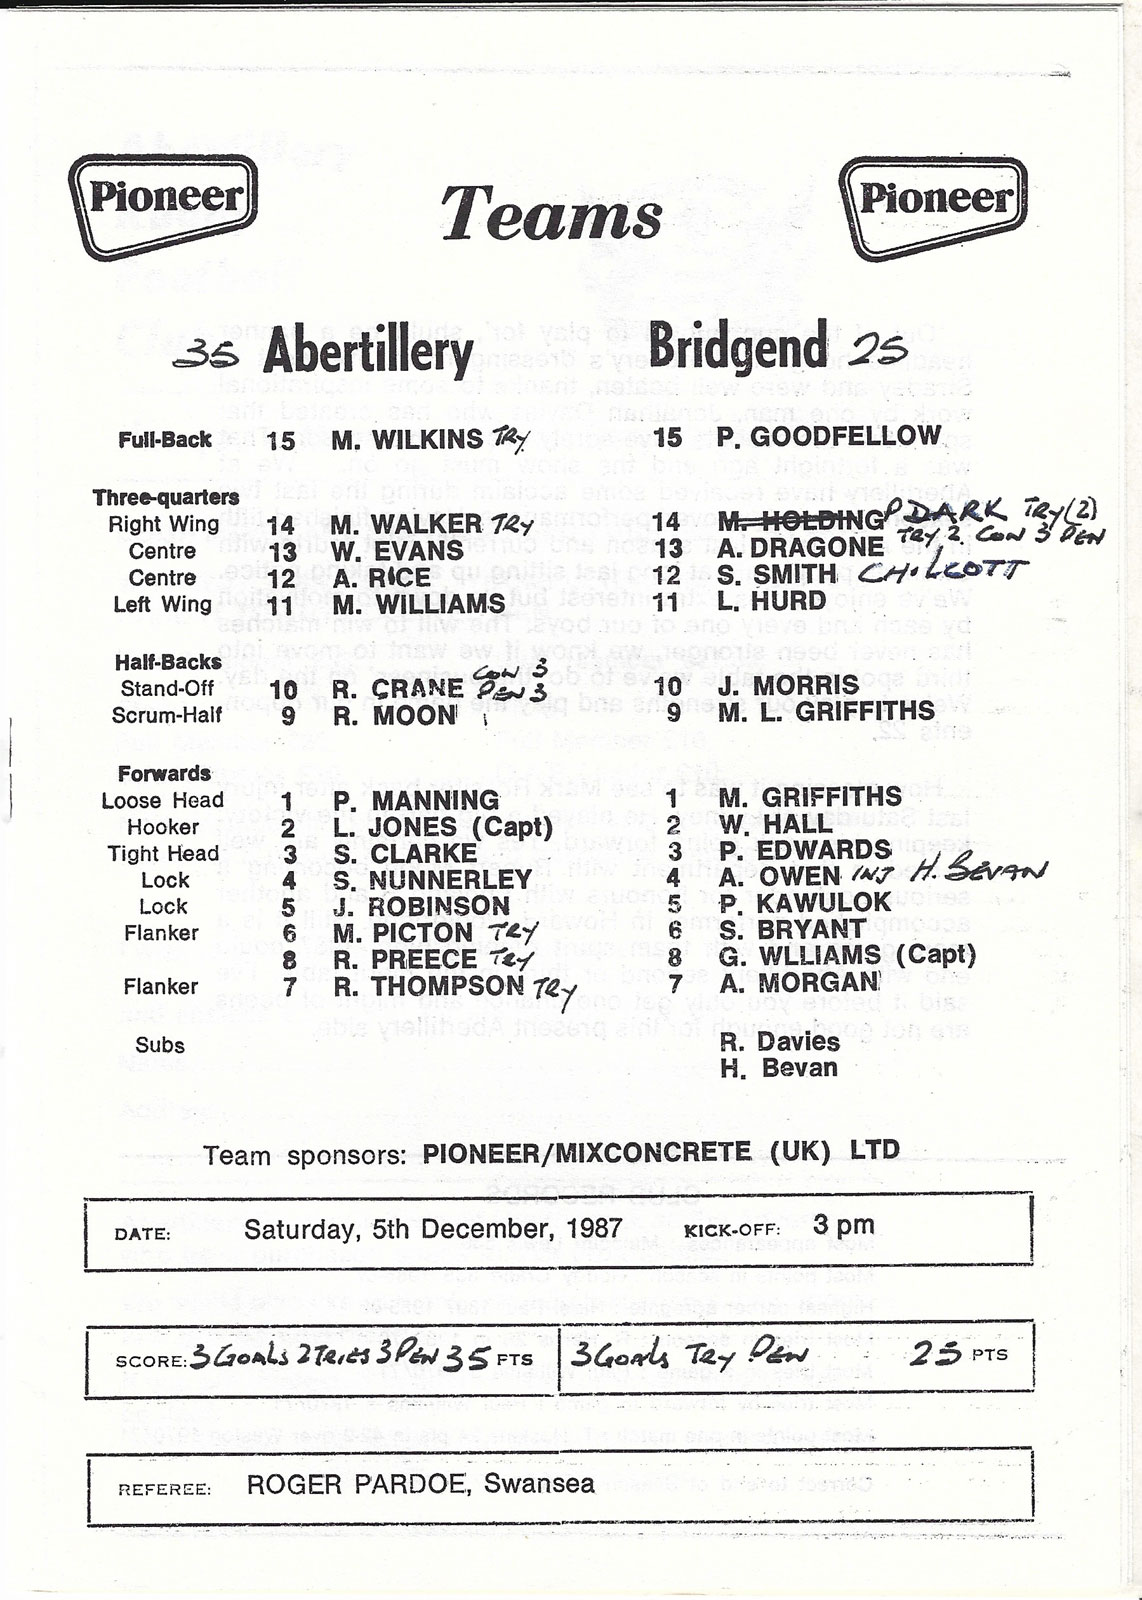 Pioneer Teams Pioneer
35 Abertillery Bridgend 25
Full-Back 15 M. WILKINS TRY 15 P. GOODFELLOW
Three-quarters
Right Wing 14 M. WALKER TRY 14 M. HOLDING P DARK TRY (2)
Centre 13 W. EVANS 13 A. DRAGONE TRY 2, CON 3 PEN
Centre 12 A. RICE 12 S. SMITH CHILCOTT
Left Wing 11 M. WILLIAMS 11 L. HURD
Half-Backs
Stand-Off 10 R. CRANE CON 3 PEN 3 10 J. MORRIS
Scrum-Half 9 R. MOON 9 M. L. GRIFFITHS
Forwards
Loose Head 1 P. MANNING 1 M. GRIFFITHS
Hooker 2 L. JONES (Capt) 2 W. HALL
Tight Head 3 S. CLARKE 3 P. EDWARDS
Lock 4 S. NUNNERLEY 4 A. OWEN INJ H. BEVAN
Lock 5 J. ROBINSON 5 P. KAWULOK
Flanker 6 M. PICTON TRY 6 S. BRYANT
8 R. PREECE TRY 8 G. WLLIAMS (Capt)
Flanker 7 R. THOMPSON TRY 7 A. MORGAN
Subs R. Davies
H. Bevan
Team sponsors: PIONEER/MIXCONCRETE (UK) LTD
DATE: Saturday, 5th December, 1987 KICK-OFF: 3 pm
SCORE: 3 GOALS 2 TRIES 3 PEN 35 PTS 3 GOALS TRY PEN 25 PTS
REFEREE: ROGER PARDOE, Swansea